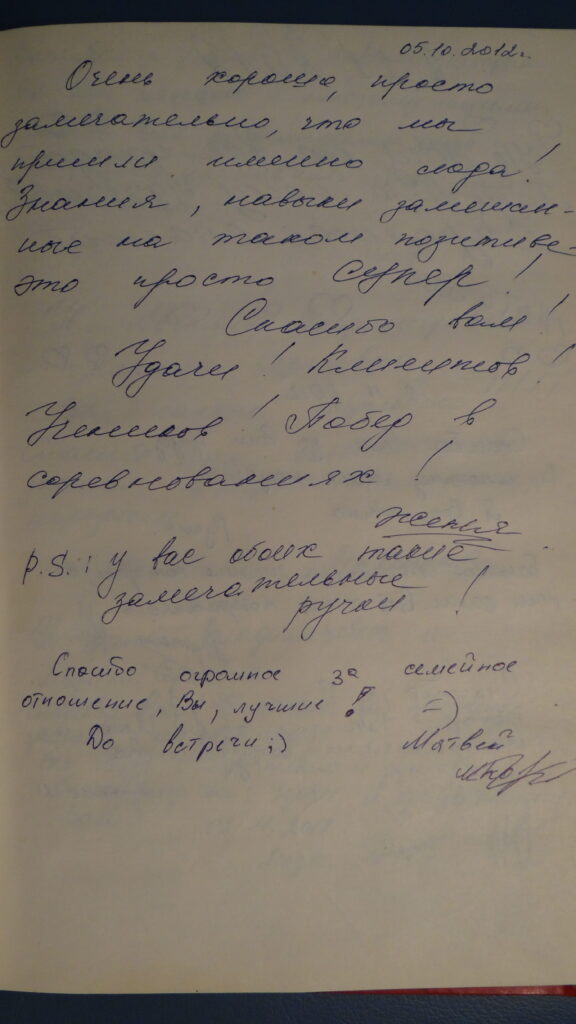 05.10.2012г.
Очень хорошо, просто
замечательно, что мы
пришли именно сюда!
Знания, навыки замешан-
ные на таком позитиве-
это просто Супер!
Спасибо вам!
Удачи! Клиентов!
Учеников! Побед в
соревнованиях!
Женя
P.S.: у вас обоих такие
замечательные
ручки!
Спасибо огромное за семейное
отношение, Вы, лучшие! =)
До встречи ;)
Матвей